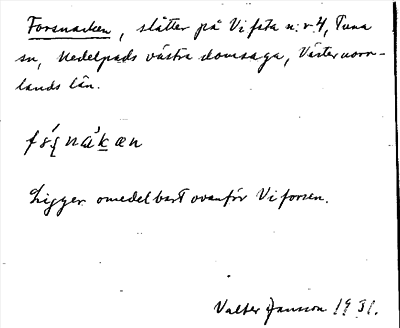 Forsnacken, slåtter på Vifsta n:r 4, Tuna
sn, Medelpads västra domsaga, Västernorr-
lands län.
Ligger omedelbart ovanför Viforsen.
Valter Jansson 1931.